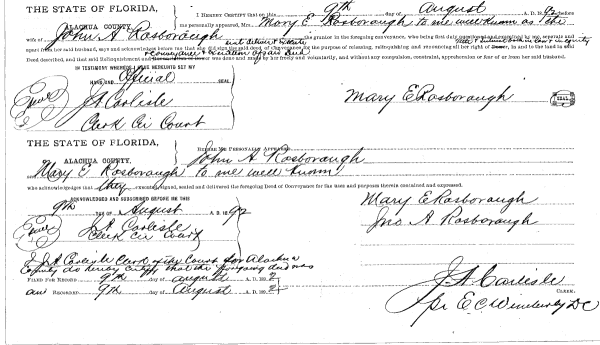 THE STATE OF FLORIDA,
ALACHUA COUNTY.
I HEREBY CERTIFY that on this 9th day of August A. D. 1892 before
me personally appeared, Mrs. Mary E Rosborough to me well known as the
wife of John A Rosborough the grantor in the foregoing conveyance, who being first duly by me, separate and
apart from her said husband, says and acknowledges before me that she did sign the said deed of Conveyance for the purpose of releasing, relinquishing and renouncing all her right of in and to the land in said
Deed described, and that said Relinquishment and Renunciation of was done and made by her freely and voluntarily, and without any compulsion, constraint, apprehension or fear of or from her said husband.
IN TESTIMONY WHEREOF I HAVE HEREUNTO SET MY
HAND AND Official SEAL
J A Carlisle
Clerk Cir Court
Mary E Rosborough
SEAL
THE STATE OF FLORIDA,
ALACHUA COUNTY.
BEFORE ME PERSONALLY APPEARED John A Rosborough
Mary E Rosborough to me well known
who acknowledges that they executed, signed, sealed and delivered the foregoing Deed of Conveyance for the uses and purposes therein contained and expressed.
ACKNOWLEDGED AND SUBSCRIBED BEFORE ME THIS
9th DAY OF August A. D. 1892
Mary E Rosborough
Jno. A Rosborough
J. A. Carlisle
Clerk Cir Court
I J A Carlisle Clerk of the Court for Alachua
County do hereby certify that the foregoing deed was
FILED FOR RECORD 9th day of August A. D. 1892
and RECORDED 9th day of August A. D. 1892
J. A. Carlisle
CLERK.
pr E C Wimberly DC